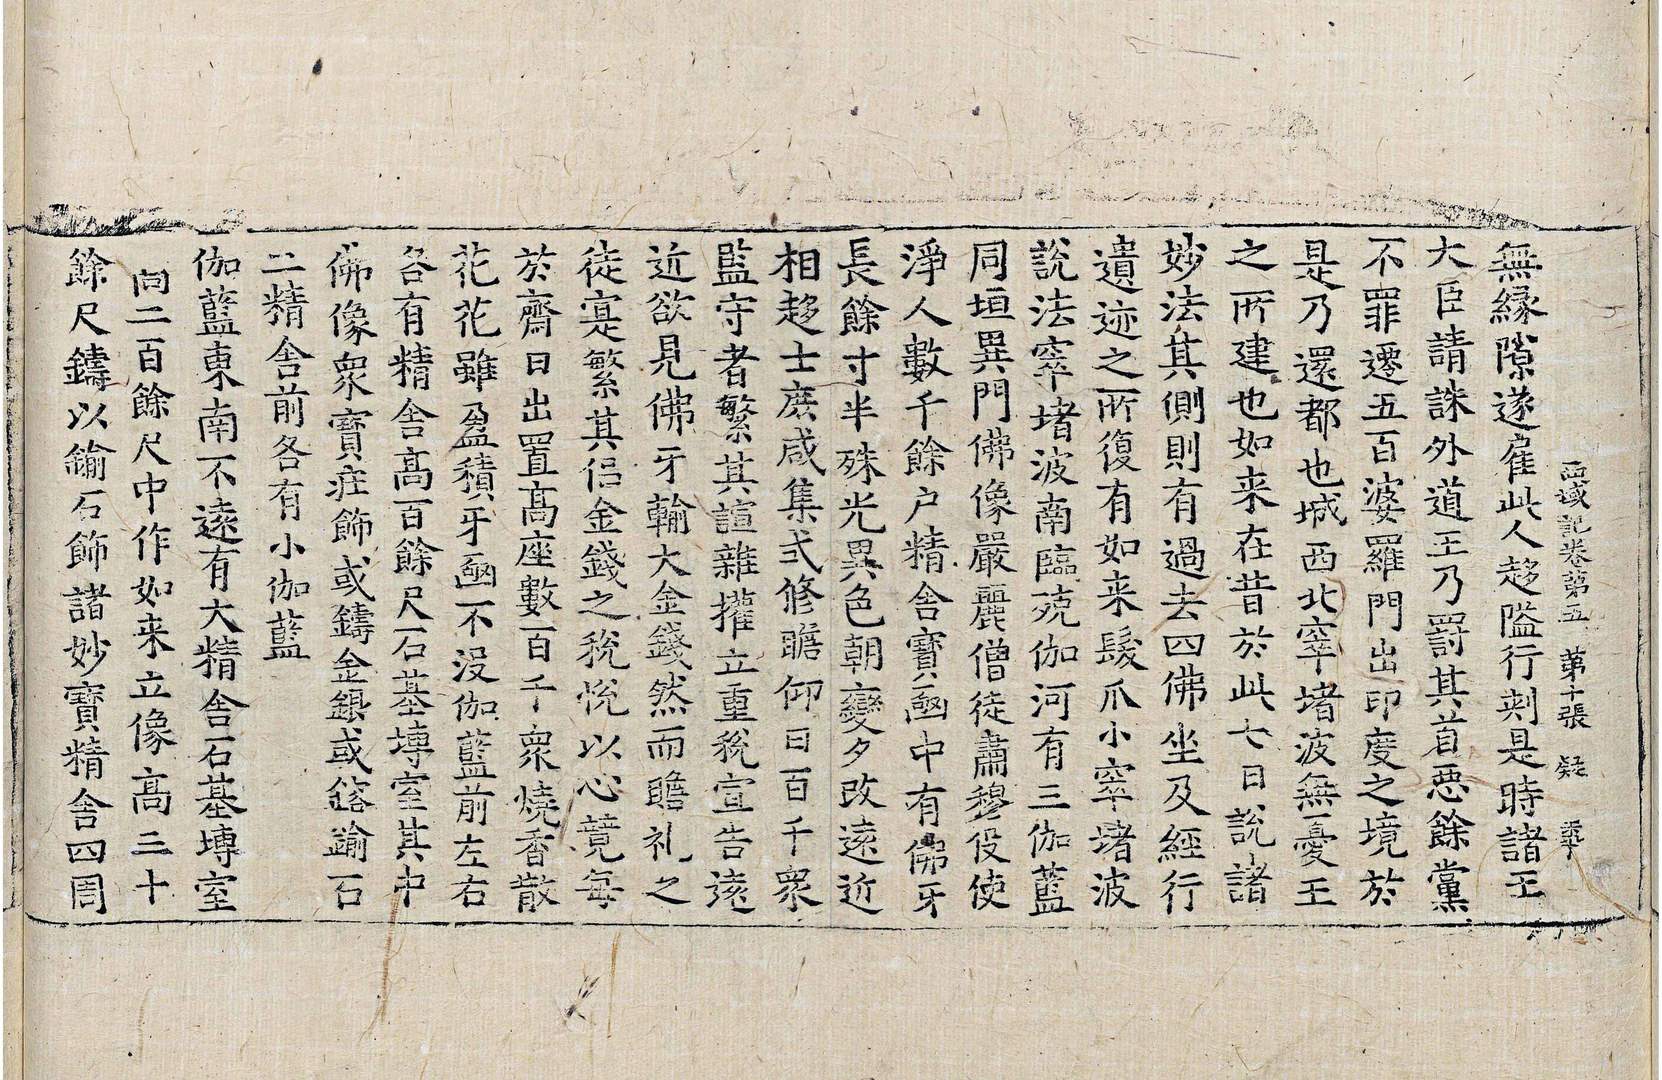 西域記卷第五　第十張　疑
無緣隙遂雇此人趍隘行刾是時諸王
大臣請誅外道王乃罸其首惡餘黨
不罪遷五百婆羅門出印度之境於
是乃還都也城西北窣堵波無憂王
之所建也如来在昔於此七日說諸
妙法其側則有過去四佛坐及經行
遺迹之所復有如来髮爪小窣堵波
說法窣堵波南臨殑伽河有三伽藍
同垣異門佛像嚴麗僧徒肅穆役使
淨人數千餘户精舍寶凾中有佛牙
長餘寸半殊光異色朝變夕改遠近
相趍士庶咸集式修瞻仰日百千衆
監守者繁其諠雜攉立重稅宣告遠
近欲見佛牙輸大金錢然而瞻礼之
徒寔繁其侣金錢之稅悅以心競每
於齋日出置髙座數百千衆燒香散
花花雖盈積牙凾不沒伽藍前左右
各有精舍髙百餘尺石基塼室其中
佛像衆寶莊飾或鑄金銀或鎔鍮石
二精舍前各有小伽藍
伽藍東南不遠有大精舍石基塼室
高二百餘尺中作如来立像髙三十
餘尺鑄以鍮石飾諸妙寶精舍四周